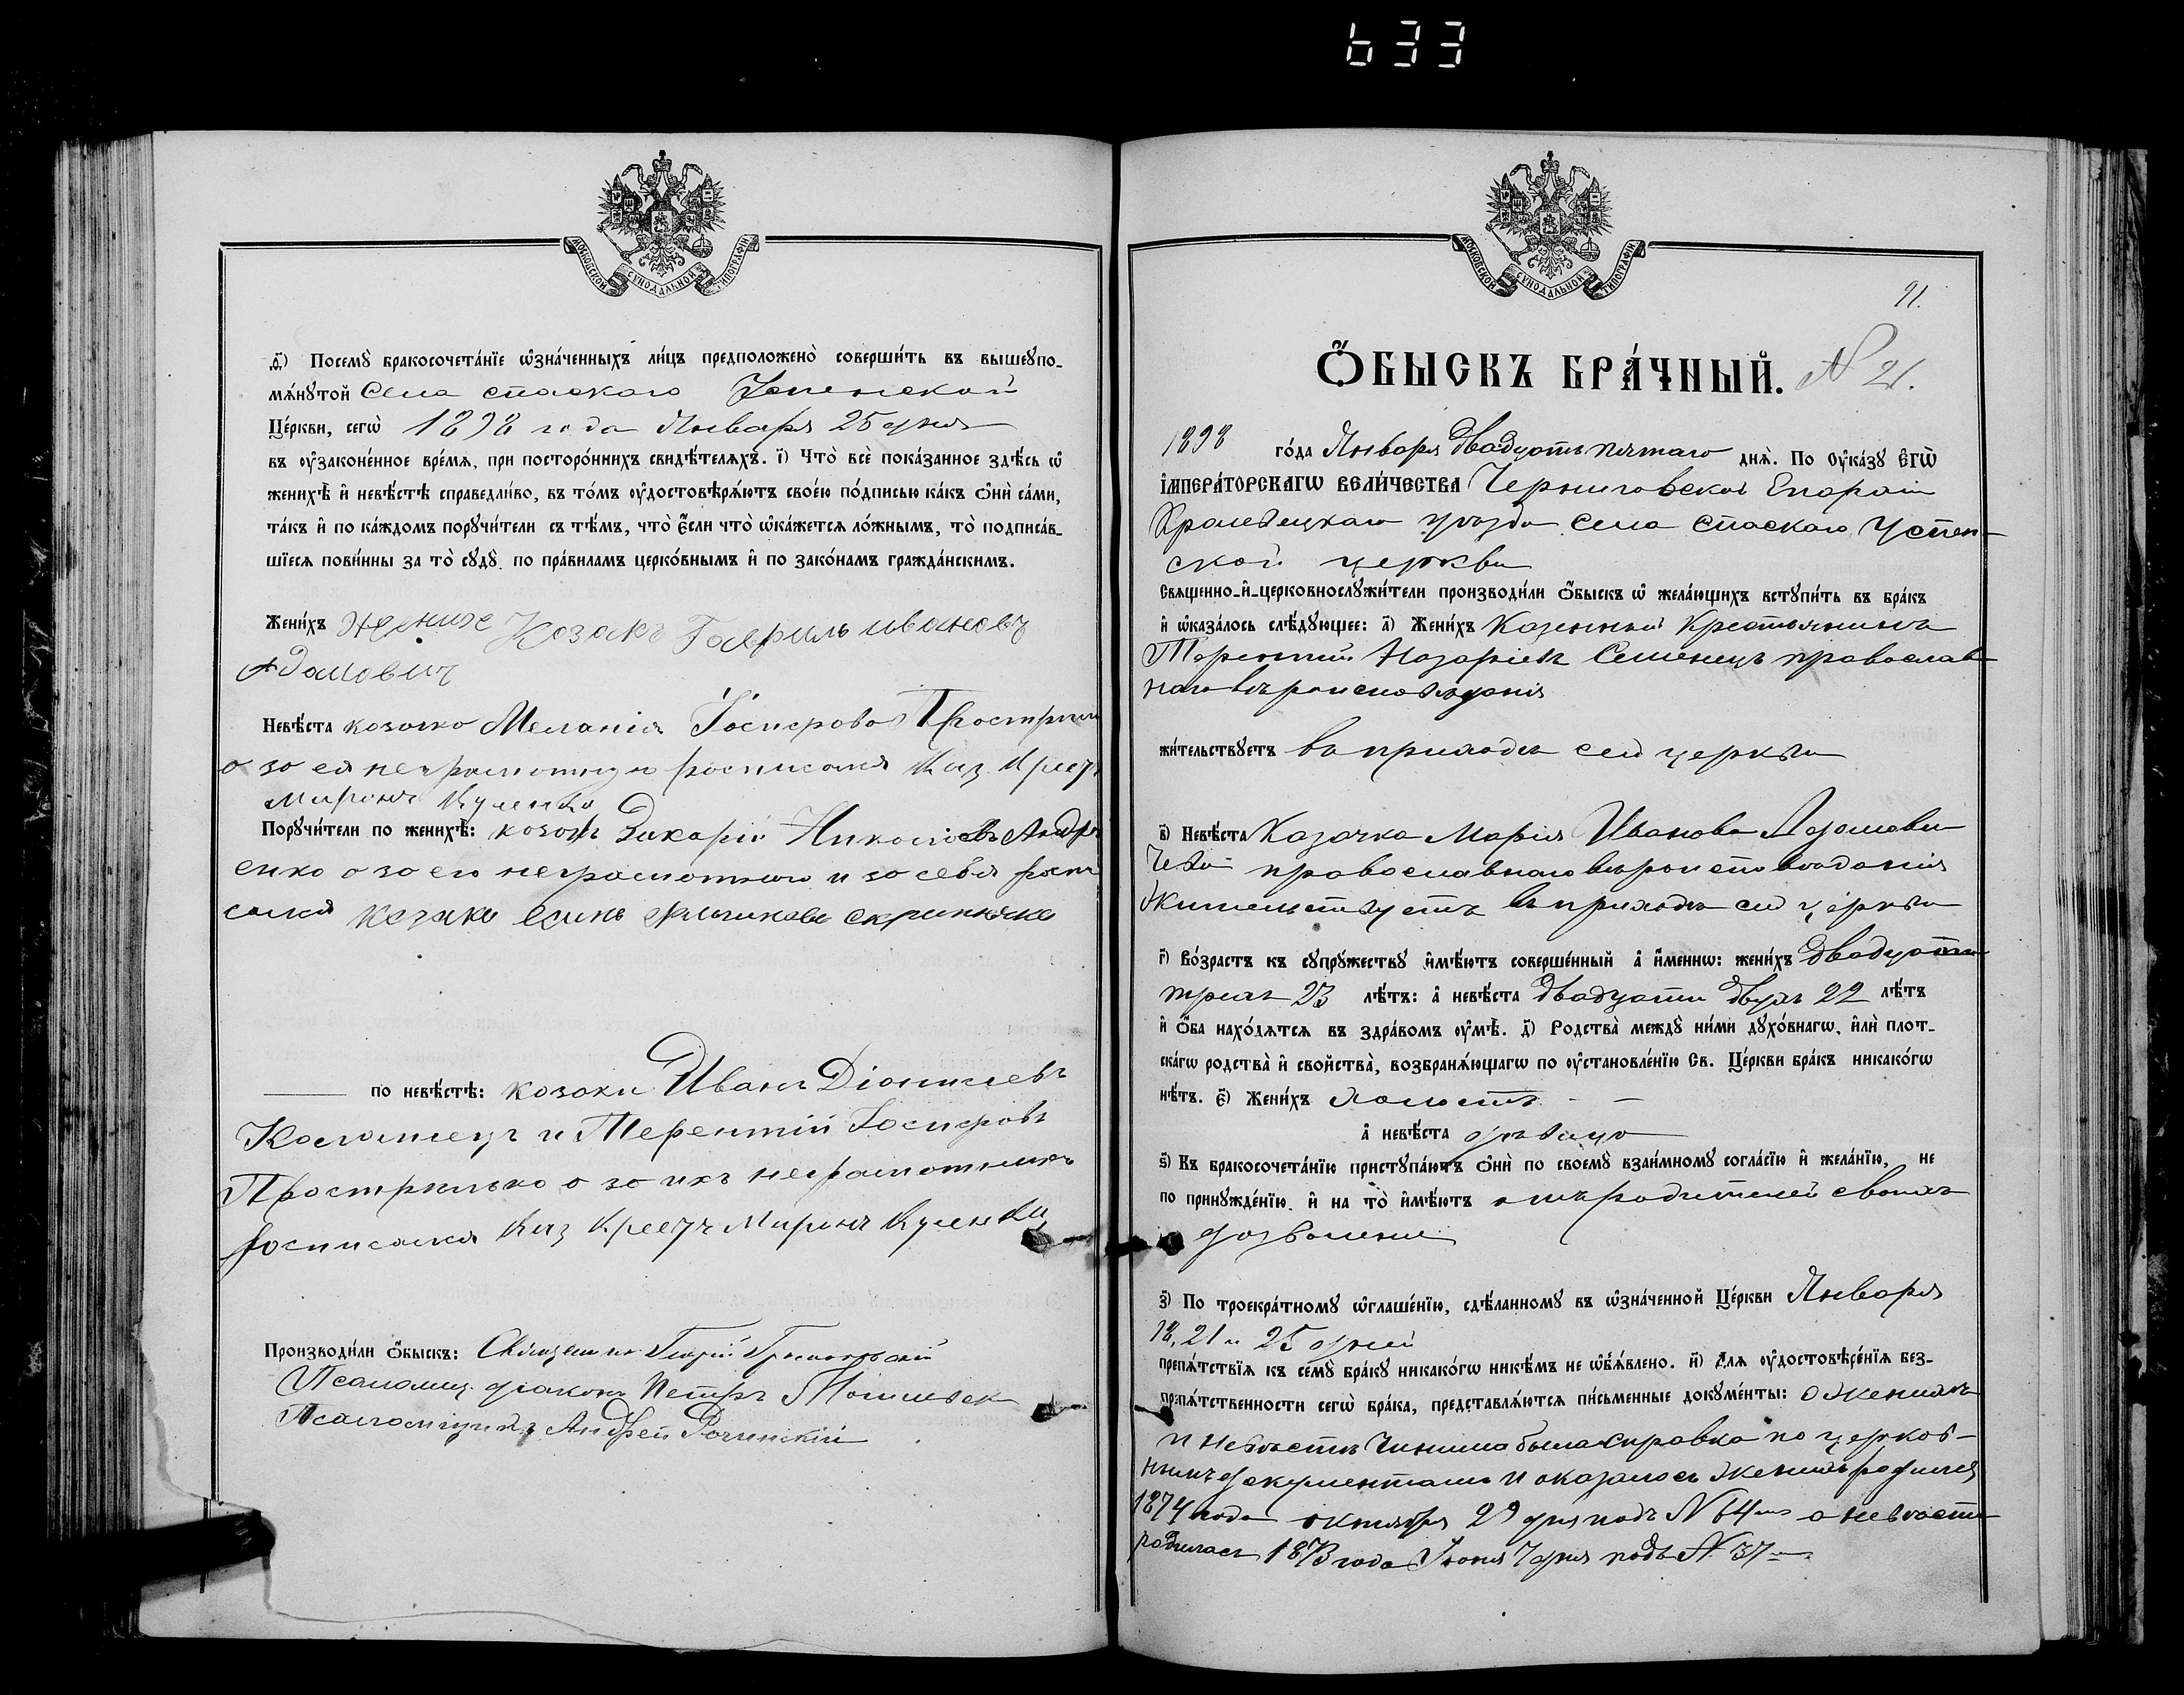 633
МОСКОВСКОЙ СУНОДАЛЬНОЙ ТИПОГРАФІИ
д҃) Посемꙋ̀ бракосочета́нїе ѡ҆зна́ченныхъ ли́цъ предположено̀ соверши́ть въ вышеꙋпо-
мѧ́нꙋтой Села Спаскаго Успенской
Це́ркви, сегѡ̀ 1898 года Января 25 дня
въ ᲂу҆законе́нное вре́мѧ, при посторо́ннихъ свидѣ́телѧхъ. і҃) Что̀ всѐ пока́занное здѣ́сь ѡ҆
женихѣ̀ и҆ невѣ́стѣ справедли́во, въ то́мъ ᲂу҆достовѣрѧ́ютъ свое́ю по́дписью ка́къ ѻ҆нѝ са́ми,
та́къ и҆ по ка́ждомъ порꙋчи́тели съ тѣ́мъ, что̀ є҆́сли что̀ ѡ҆ка́жетсѧ ло́жнымъ, то̀ подписа́в-
шїесѧ пови́нны за то̀ сꙋдꙋ̀ по пра́виламъ церко́внымъ и҆ по зако́намъ гражда́нскимъ.
Жени́хъ жених Козакъ Гаврилъ ивановъ
Адамович
Невѣ́ста козачка Меланія Госифова Прострил
а за ея неграмотную росписался Каз. Крест
Миронъ Куленко
Порꙋчи́тели по женихѣ̀: козакъ Захарій Николаевъ Андре
енко а за его неграмотнаго и за себя роспи
сался козакъ
по невѣ́стѣ: козаки Иванъ Діонисіевъ
и Терентій Госифовъ
а за ихъ неграмотныхъ
росписался Каз Крест Миронъ Куленко
Производи́ли ѻ҆́быскъ: Священникъ Георгій
Псаломщ. діаконъ Петръ
Псаломщикъ Андрей
МОСКОВСКОЙ СУНОДАЛЬНОЙ ТИПОГРАФІИ
21.
Ѻ҆́БЫСКЪ БРА́ЧНЫЙ. N 21.
1898 го́да Января двадцать пятаго днѧ̀. По ᲂу҆ка́зꙋ Є҆ГѠ̀
І҆МПЕРА́ТОРСКАГѠ ВЕЛИ́ЧЕСТВА Черниговской Епархіи
Кролевецкаго уѣзда села Спаскаго Успен-
ской церкви
Свѧщенно-и҆-церковнослꙋжи́тели производи́ли ѻ҆́быскъ ѡ҆ жела́ющихъ вступи́ть въ бра́къ
и҆ ѡ҆каза́лось слѣ́дꙋющее: а҃) Жени́хъ Казенный Крестьянинъ
Терентій Назаріевъ Семенецъ православ
наго вѣроисповѣданія
жи́тельствꙋетъ въ приходѣ сей церкви
в҃) Невѣ́ста Казачка Марія Иванова
православнаго вѣроисповѣданія
жительствуетъ въ приходѣ сей церкви
г҃) Во́зрастъ къ сꙋпрꙋ́жествꙋ и҆мѣ́ютъ соверше́нный а҆ и҆́меннѡ: жени́хъ двадцати
трехъ 23 лѣ́тъ: а҆ невѣ́ста двадцати двухъ 22 лѣ́тъ
и҆ ѻ҆́ба нахо́дѧтсѧ въ здра́вомъ ᲂу҆мѣ̀. д҃) Родства̀ междꙋ̀ ни́ми дꙋхо́внагѡ, и҆лѝ плот-
ска́гѡ родства̀ и҆ свойства̀, возбранѧ́ющагѡ по ᲂу҆становле́нїю Св. Це́ркви бра́къ никако́гѡ
нѣ́тъ. є҃) Жени́хъ холостъ - -
а҆ невѣ́ста дѣвица
ѕ҃) Къ бракосочета́нїю пристꙋпа́ютъ ѻ҆нѝ по своемꙋ̀ взаи́мномꙋ согла́сїю и҆ жела́нїю, не
по принꙋжде́нїю, и҆ на то̀ и҆мѣ́ютъ отъ родителей своихъ
дозволеніе
з҃) По троекра́тномꙋ ѡ҆глаше́нїю, сдѣ́ланномꙋ въ ѡ҆зна́ченной Це́ркви Января
18, 21 и 25 дней
препѧ́тствїѧ къ семꙋ̀ бра́кꙋ никако́гѡ никѣ́мъ не ѡ҆б̾ѧ́влено. и҃) Длѧ ᲂу҆достовѣре́нїѧ без-
препѧ́тственности сегѡ̀ бра́ка, представлѧ́ютсѧ пи́сьменные докꙋме́нты: о женихѣ
и невѣстѣ чинима была справка по церков-
нымъ документамъ и оказалось женихъ родился
1874 года октября 29 дня подъ N 64 а невѣста
родилась 1873 года Іюня 7 дня подъ N 37